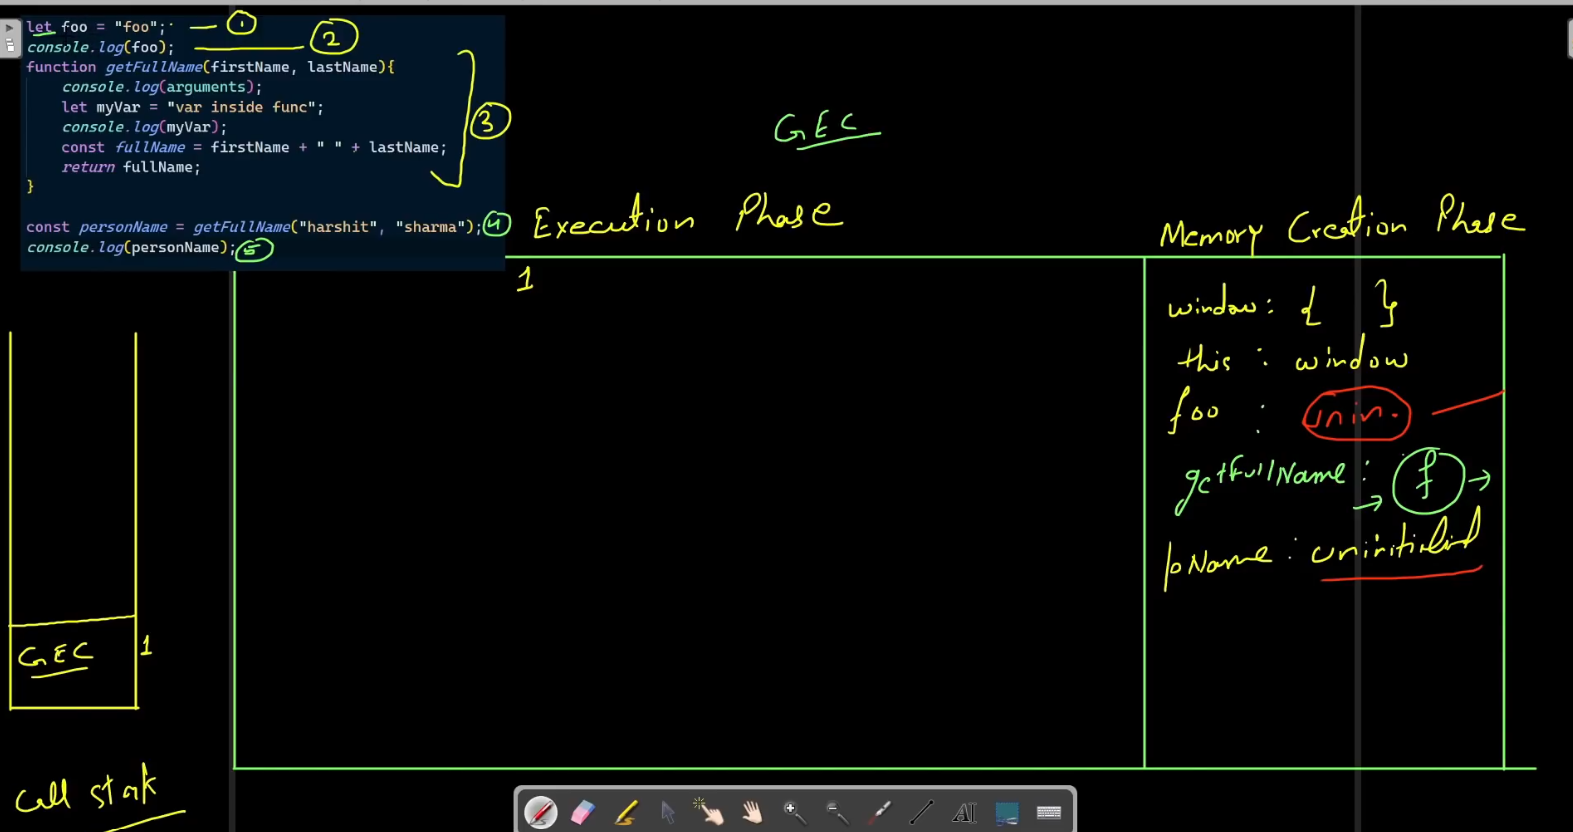 let foo = "foo"; 1
console.log(foo); 2
function getFullName(firstName, lastName){
console.log(arguments);
let myVar = "var inside func";
console.log(myVar); 3
const fullName = firstName + " " + lastName;
return fullName;
}
const personName = getFullName("harshit", "sharma"); 4
console.log(personName); 5
GEC
Execution Phase
Memory Creation Phase
1
window: { }
this : window
foo : unin.
getFullName: f
pName:
GEC 1
Call
AI